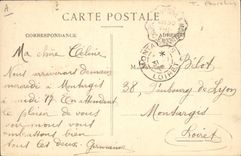 CARTE POSTALE
CORRESPONDANCE
Ma chère Céline
Nous arriverons demain
mercredi à Montargis
à midi 17. En attendant
le plaisir de vous
voir nous vous
embrassons bien
tous les deux. Germaine
MONTARGIS
LOIRET
Bilot
28, Faubourg de Lyon
Montargis
Loiret